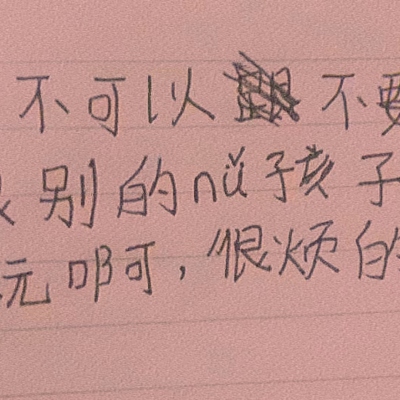 不可以 不要
别的nǚ孩子
玩啊,很烦的